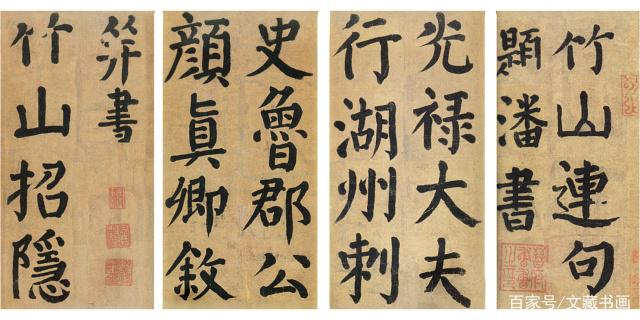 竹山連句
題潘書
光禄大夫
行湖州刺
史魯郡公
顔眞卿敘
并書
竹山招隱
百家号/文藏书画